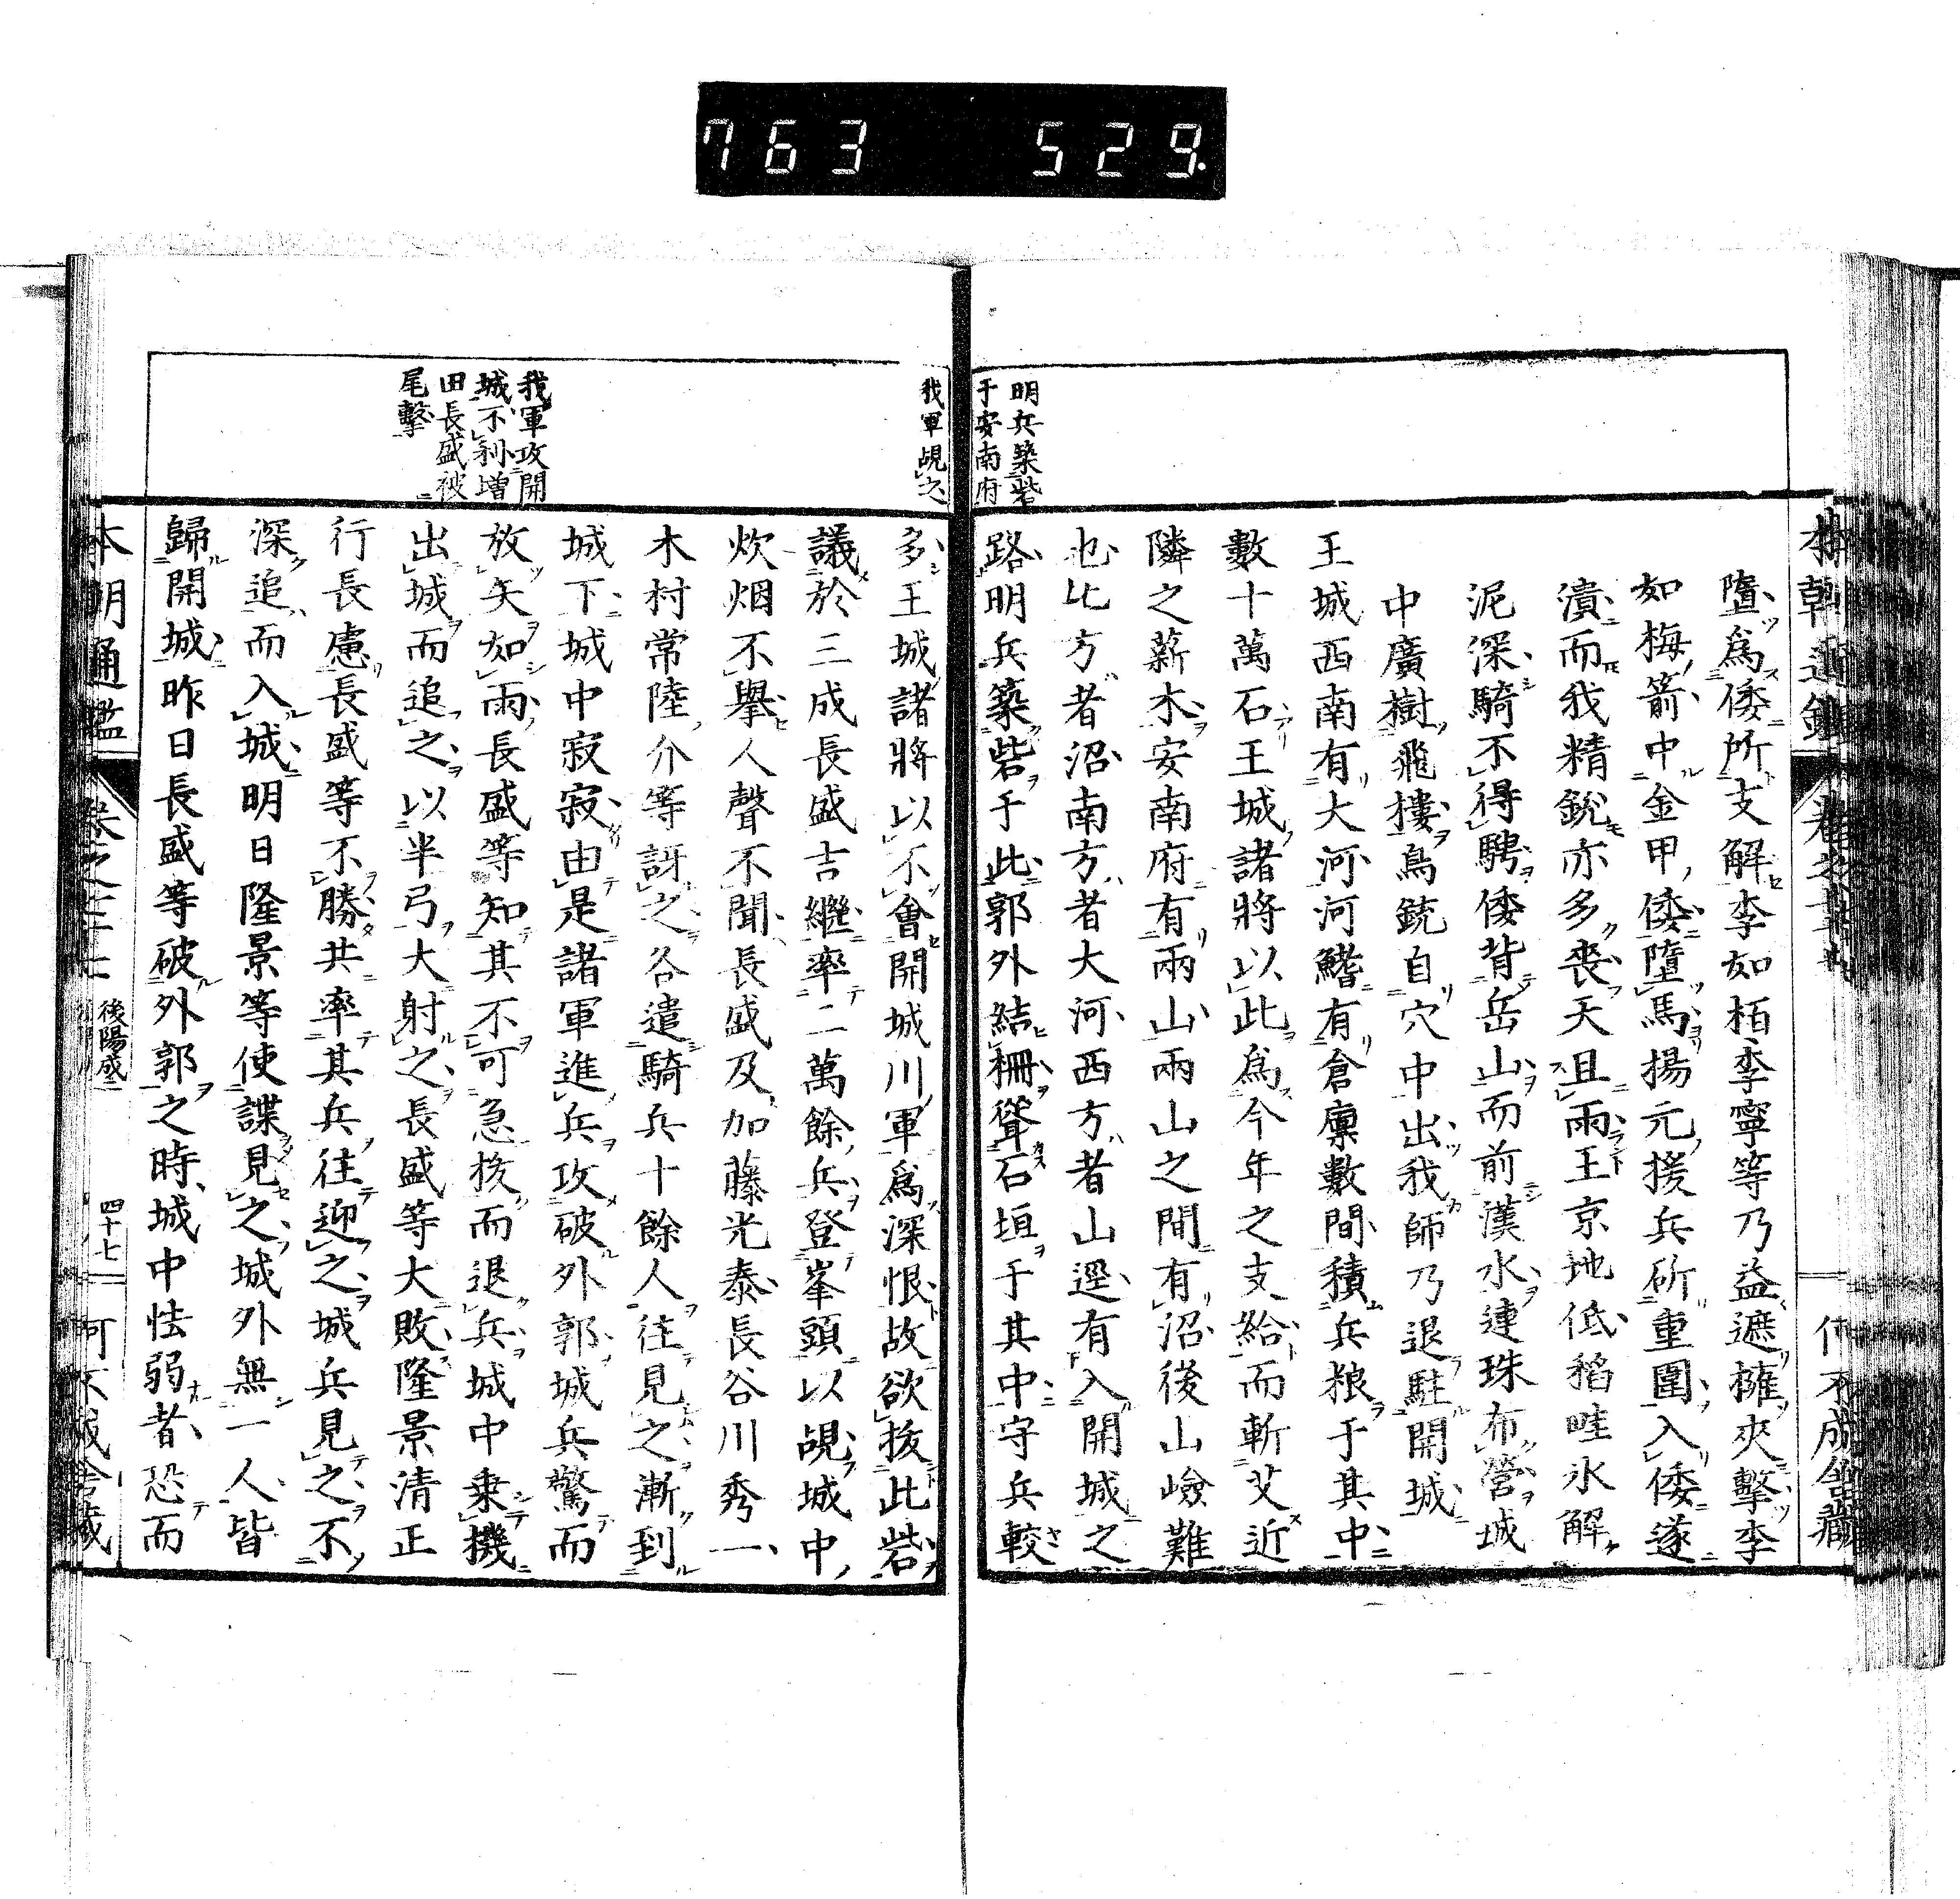 763 529
明兵築砦
于安南府
墮爲倭所支解李如栢李寧等乃益遮擁夾擊李
如梅箭中金甲倭墮馬揚元援兵斫重圍入倭遂
潰而我精銳亦多喪天且雨王京地低稻畦氷解
泥深騎不得騁倭背岳山而前漢水連珠布營城
中廣樹飛樓鳥銃自穴中出我師乃退駐開城
王城西南有大河河鰭有倉廩數間積兵粮于其中
數十萬石王城諸將以此爲今年之支給而斬艾近
隣之薪木安南府有兩山兩山之間有沼後山嶮難
也比方者沼南方者大河西方者山逕有入開城之
路明兵築砦于此郭外結柵聳石垣于其中守兵較
我軍覘之
我軍攻開
城不利增
田長盛被
尾擊
多王城諸將以不會開城川軍爲深恨故欲拔此砦
議於三成長盛吉繼率二萬餘兵登峯頭以覘城中
炊烟不擧人聲不聞長盛及加藤光泰長谷川秀一
木村常陸介等訝之各遣騎兵十餘人往見之漸到
城下城中寂寂由是諸軍進兵攻破外郭城兵驚而
放矢如雨長盛等知其不可急拔而退兵城中乗機
出城而追之以半弓大射之長盛等大敗隆景清正
行長慮長盛等不勝共率其兵往迎之城兵見之不
深追而入城明日隆景等使諜見之城外無一人皆
歸開城昨日長盛等破外郭之時城中怯弱者恐而
本朝通鑑 卷之 後陽成二 四十七